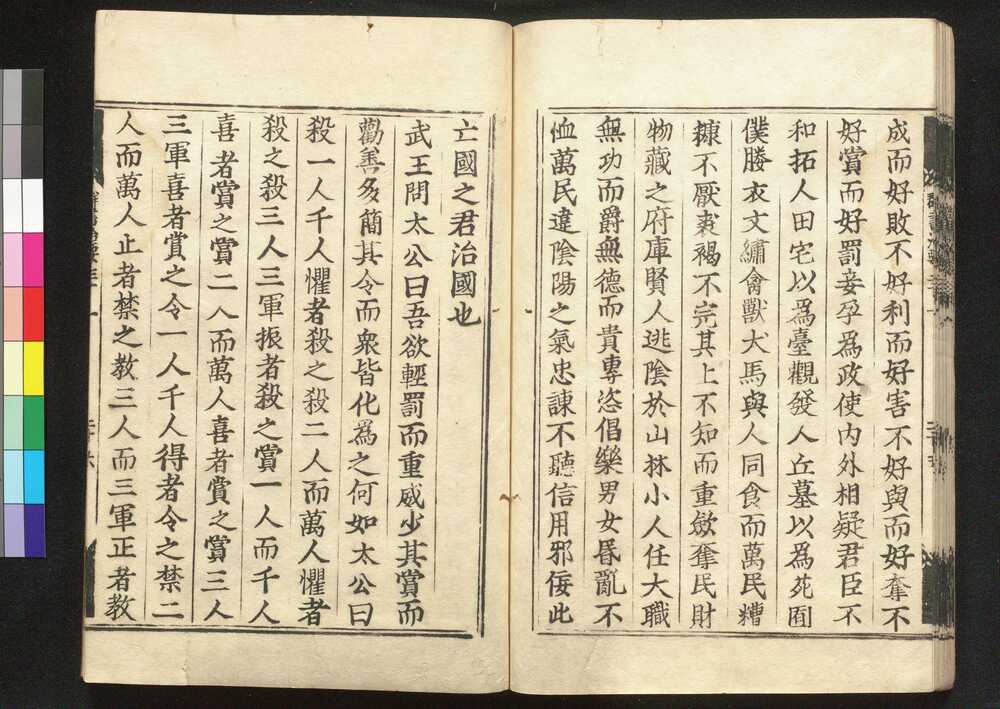 成而好敗不好利而好害不好與而好奪不
好賞而好罰妾孕爲政使内外相疑君臣不
和拓人田宅以爲臺觀發人丘墓以爲苑囿
僕媵衣文繡禽獸犬馬與人同食而萬民糟
糠不厭裘褐不完其上不知而重斂奪民財
物藏之府庫賢人逃陰於山林小人任大職
無功而爵無德而貴專恣倡樂男女昬亂不
恤萬民違陰陽之氣忠諫不聽信用邪佞此
亡國之君治國也
武王問太公曰吾欲輕罰而重威少其賞而
勸善多簡其令而衆皆化爲之何如太公曰
殺一人千人懼者殺之殺二人而萬人懼者
殺之殺三人三軍振者殺之賞一人而千人
喜者賞之賞二人而萬人喜者賞之賞三人
三軍喜者賞之令一人千人得者令之禁二
人而萬人止者禁之教三人而三軍正者教